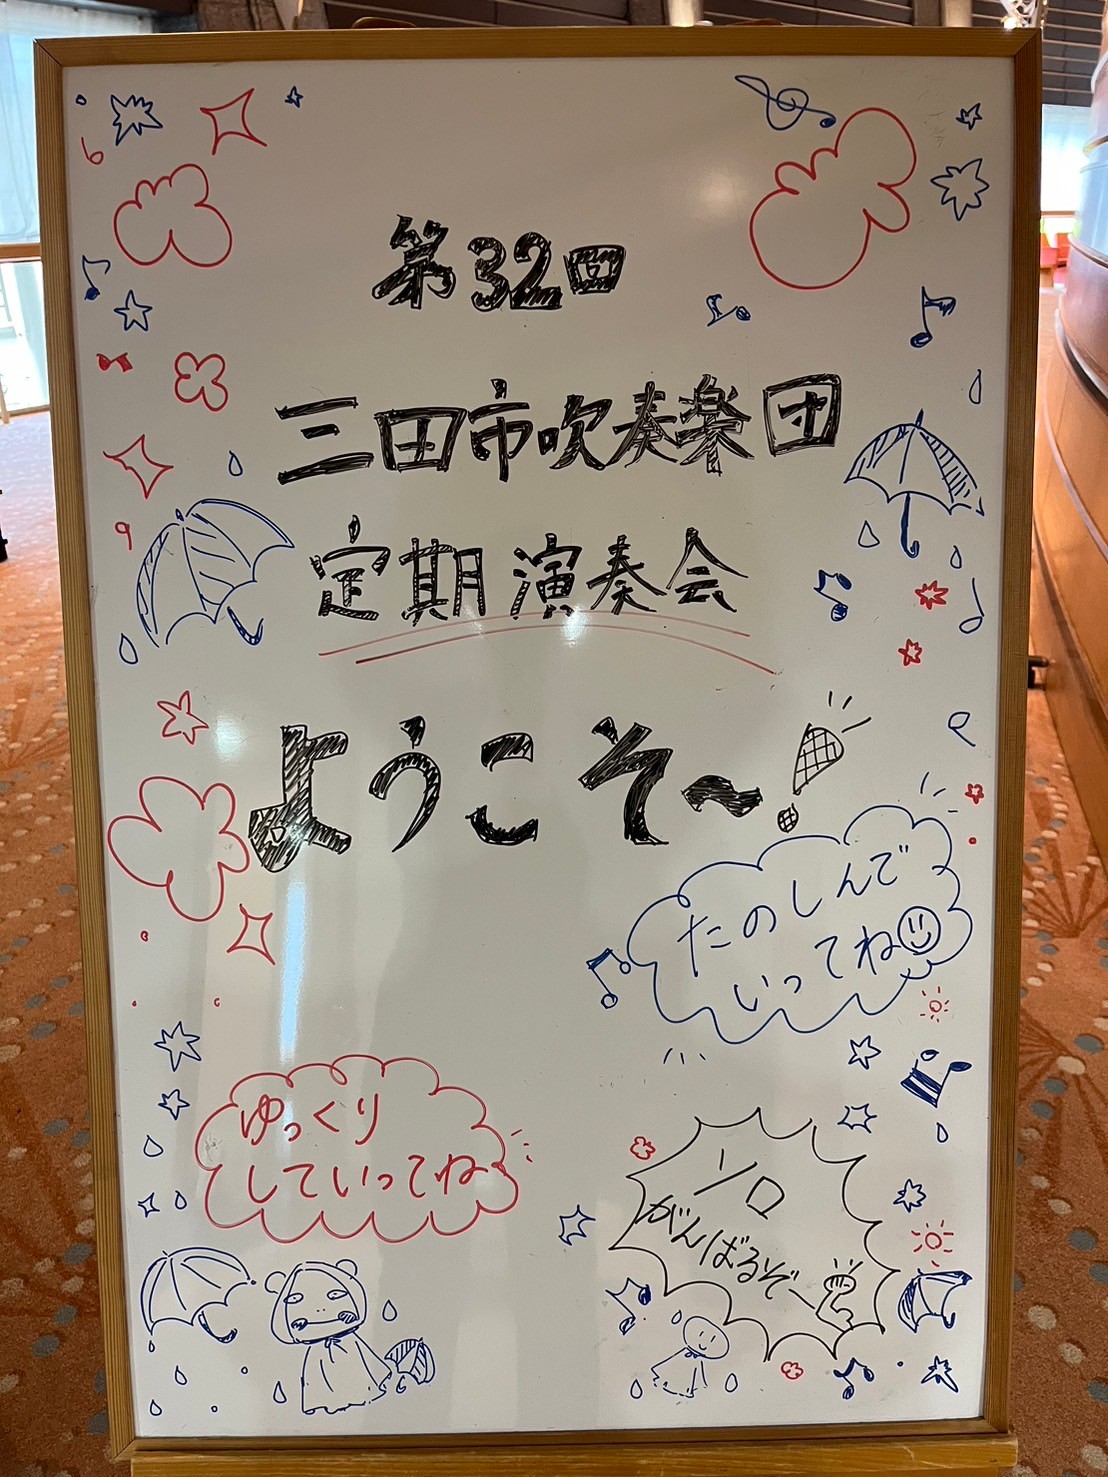 第32回
三田市吹奏楽団
定期演奏会
ようこそ~!
たのしんで
いってね
ゆっくり
していってね
ソロ
がんばるぞー